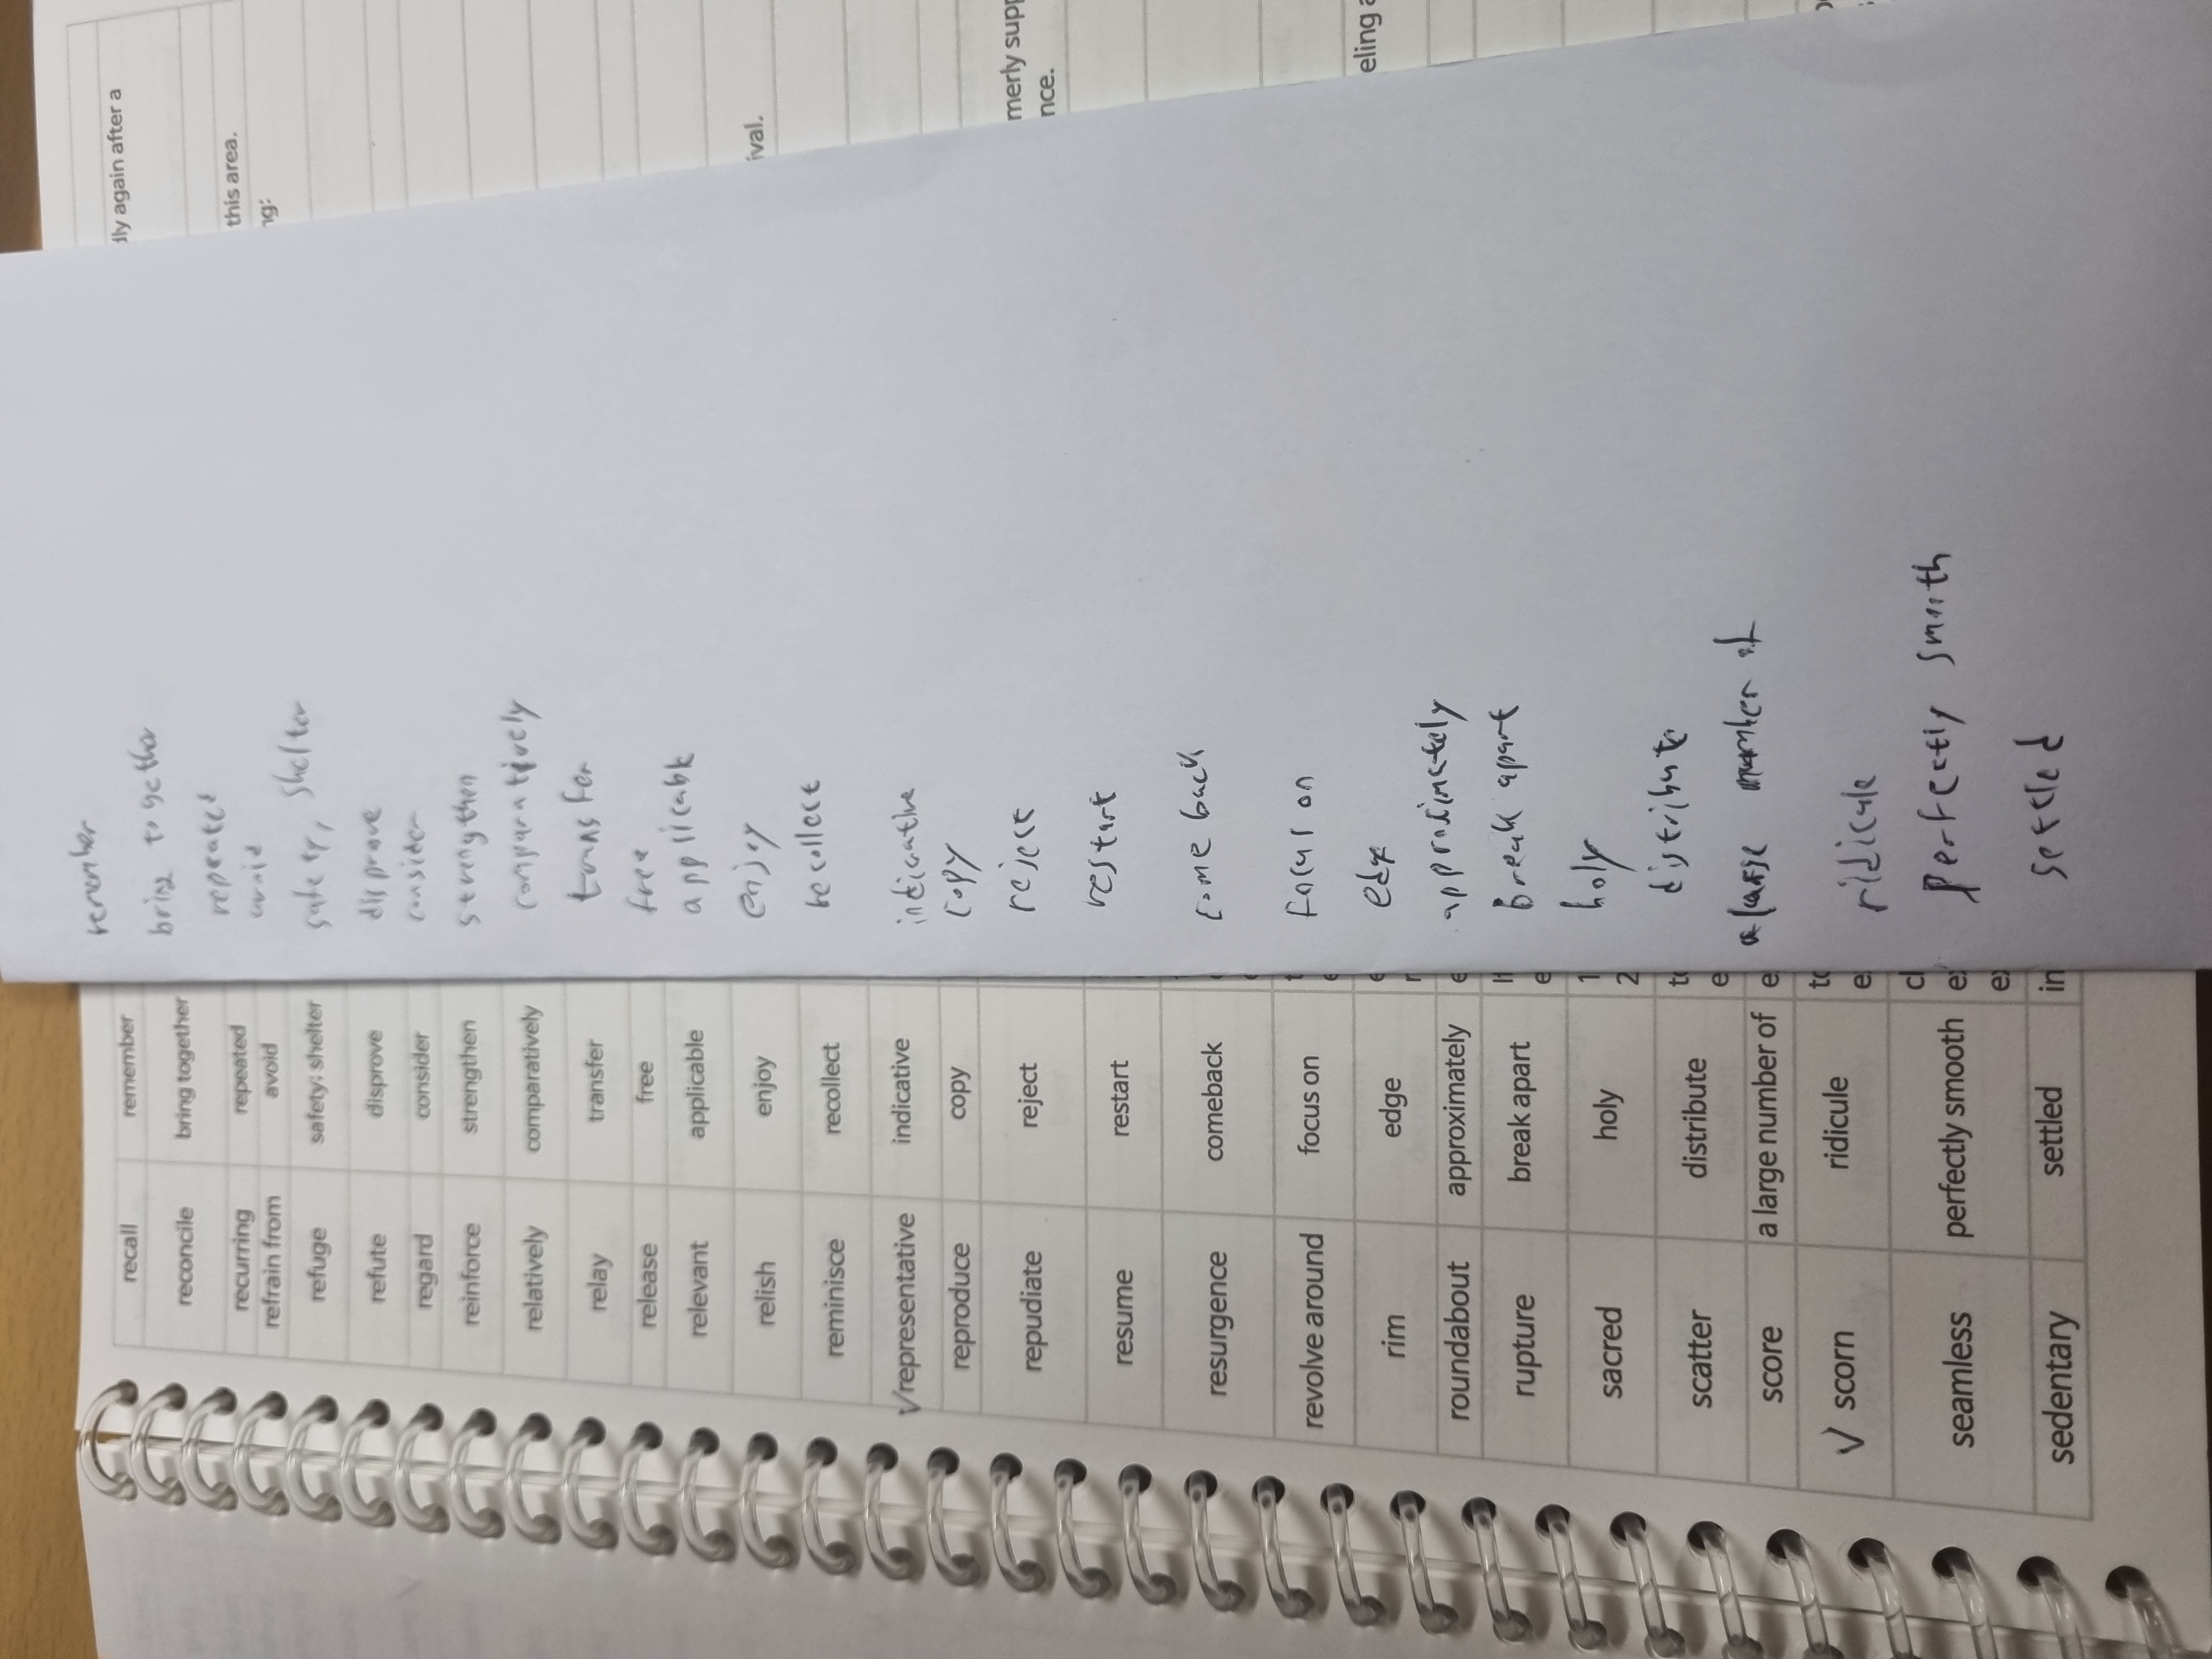 recall remember remember
reconcile bring together bring together
recurring repeated repeated
refrain from avoid avoid
refuge safety; shelter safety, shelter
refute disprove disprove
regard consider consider
reinforce strengthen strengthen
relatively comparatively comparatively
relay transfer transfer
release free free
relevant applicable applicable
relish enjoy enjoy
reminisce recollect recollect
√ representative indicative indicative
reproduce copy copy
repudiate reject reject
resume restart restart
resurgence comeback come back
revolve around focus on focus on
rim edge edge
roundabout approximately approximately
rupture break apart break apart
sacred holy holy
scatter distribute distribute
score a large number of a large number of
√ scorn ridicule ridicule
seamless perfectly smooth perfectly smooth
sedentary settled in settled
dly again after a
this area.
ng:
ival.
merly supp
nce.
eling a